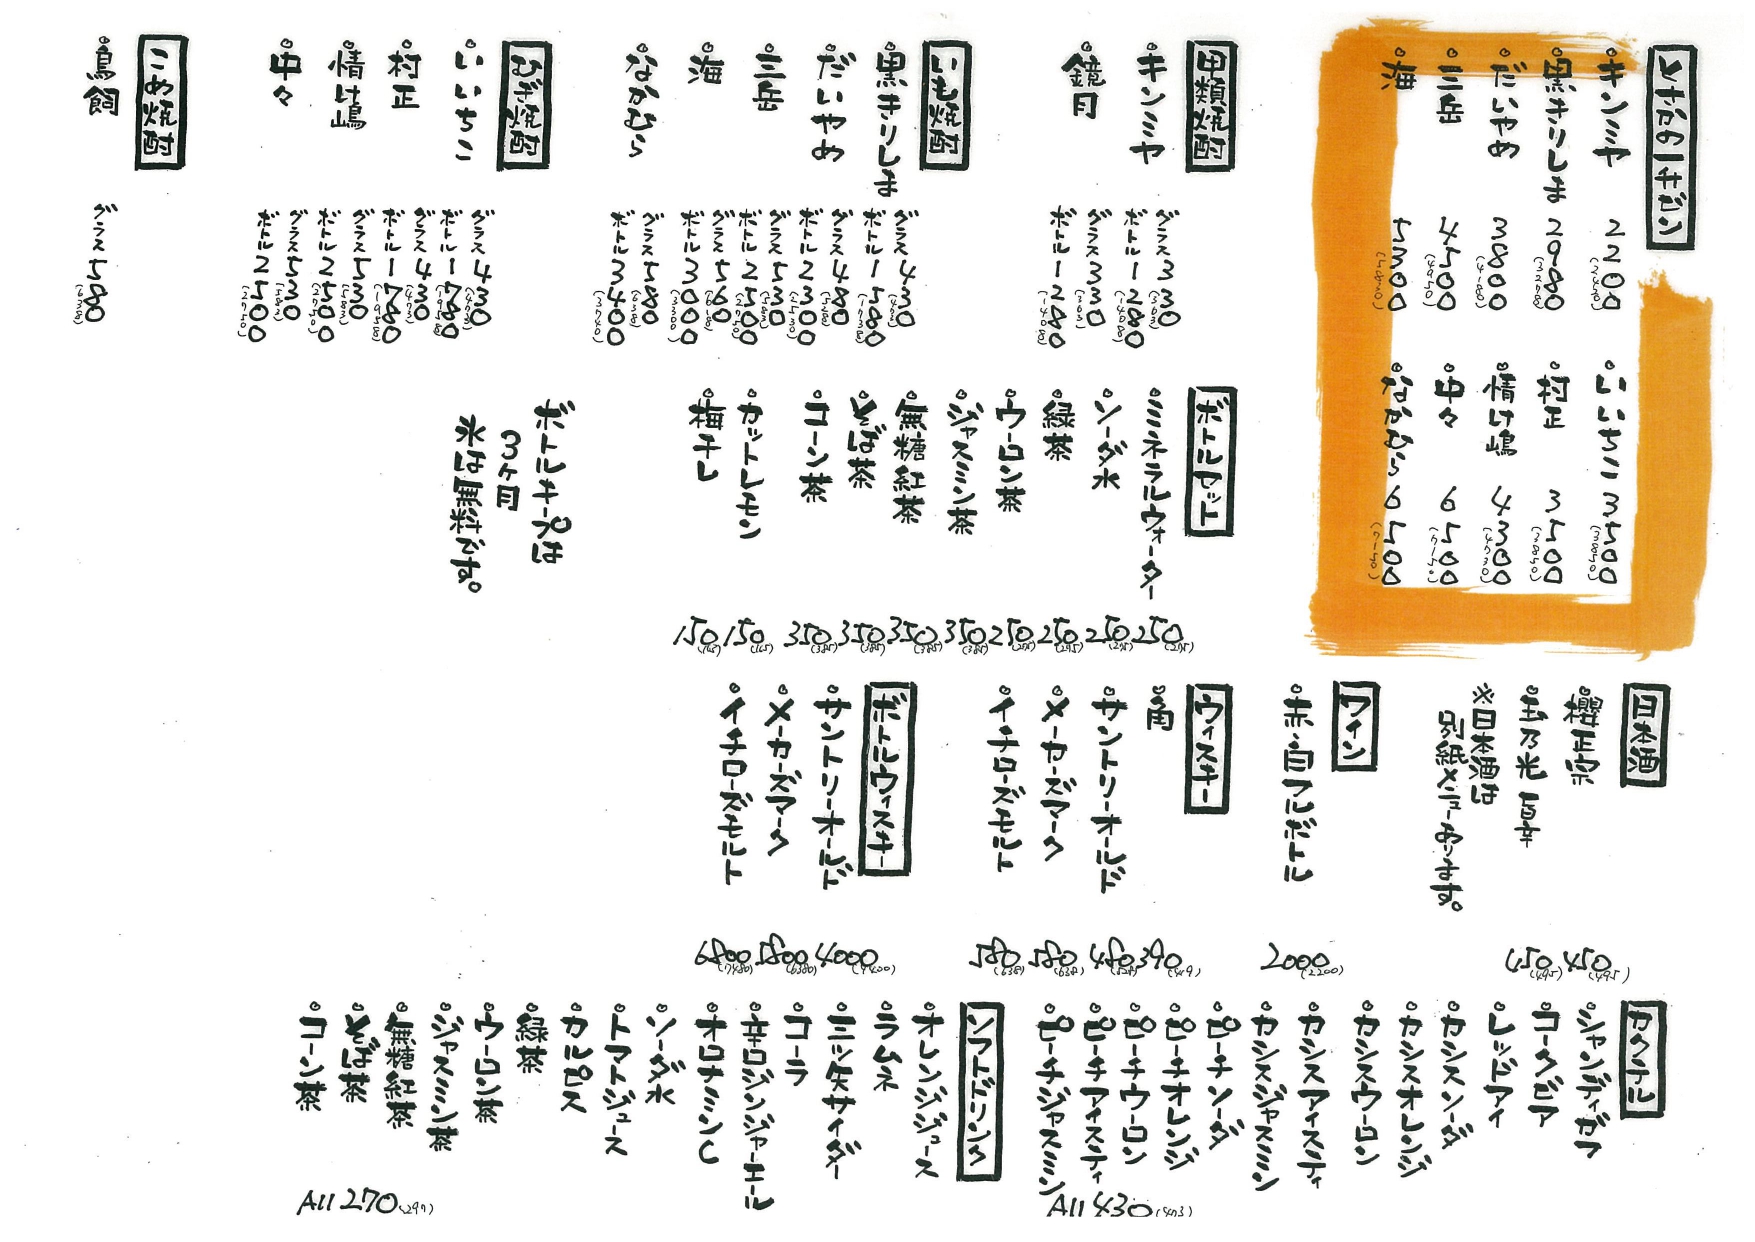 とたかの1升ビン
キンミヤ 2200(2420)
黒きりしま 2980(3278)
だいやめ 3800(4180)
三岳 4500(4950)
海 5300(5830)
いいちこ 3500(3850)
村正 3500(3850)
情け嶋 4300(4730)
中々 6500(7150)
なかむら 6500(7150)
甲類焼酎
キンミヤ グラス330(363)
ボトル1280(1408)
鏡月 グラス330(363)
ボトル1280(1408)
いも焼酎
黒きりしま グラス430(473)
ボトル1580(1738)
だいやめ グラス480(528)
ボトル2300(2530)
三岳 グラス530(583)
ボトル2500(2750)
海 グラス560(616)
ボトル3000(3300)
なかむら グラス580(638)
ボトル3400(3740)
むぎ焼酎
いいちこ グラス430(473)
ボトル1780(1958)
村正 グラス430(473)
ボトル1780(1958)
情け嶋 グラス530(583)
ボトル2500(2750)
中々 グラス530(583)
ボトル2500(2750)
こめ焼酎
鳥飼 グラス580(638)
ボトルセット
ミネラルウォーター 250(275)
ソーダ水 250(275)
緑茶 250(275)
ウーロン茶 250(275)
ジャスミン茶 350(385)
無糖紅茶 350(385)
そば茶 350(385)
コーン茶 350(385)
カットレモン 150(165)
梅干し 150(165)
ボトルキープは
3ヶ月
氷は無料です。
日本酒
櫻正宗 450(495)
玉乃光 旨辛 450(495)
※日本酒は
別紙メニューあります。
ワイン
赤・白フルボトル 2000(2200)
ウィスキー
角 390(429)
サントリーオールド 480(528)
メーカーズマーク 580(638)
イチローズモルト 580(638)
ボトルウィスキー
サントリーオールド 4000(4400)
メーカーズマーク 5800(6380)
イチローズモルト 6800(7480)
カクテル
シャンディガフ
コークビア
レッドアイ
カシスソーダ
カシスオレンジ
カシスウーロン
カシスアイスティ
カシスジャスミン
ピーチソーダ
ピーチオレンジ
ピーチウーロン
ピーチアイスティ
ピーチジャスミン
All 430(473)
ソフトドリンク
オレンジジュース
ラムネ
三ツ矢サイダー
コーラ
辛口ジンジャーエール
オロナミンC
ソーダ水
トマトジュース
カルピス
緑茶
ウーロン茶
ジャスミン茶
無糖紅茶
そば茶
コーン茶
All 270(297)